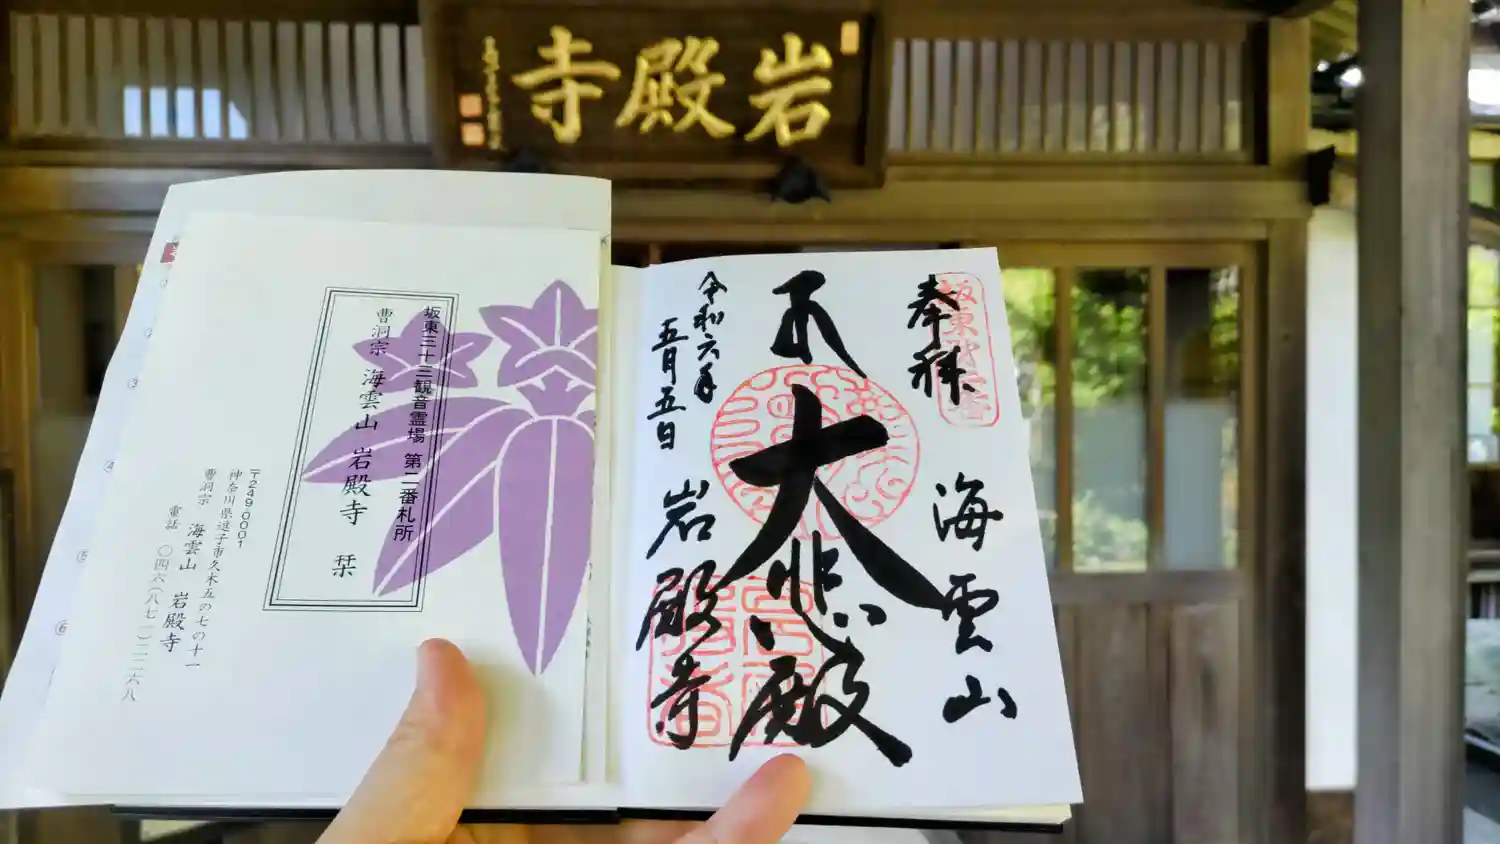 岩殿寺
坂東三十三観音霊場 第二番札所
曹洞宗 海雲山 岩殿寺 栞
〒249-0001
神奈川県逗子市久木五の七の十一
曹洞宗 海雲山 岩殿寺
電話 〇四六(八七一)二二六八
③
④
⑤
⑥
奉拝
海雲山
大悲殿
令和六年
五月五日
岩殿寺